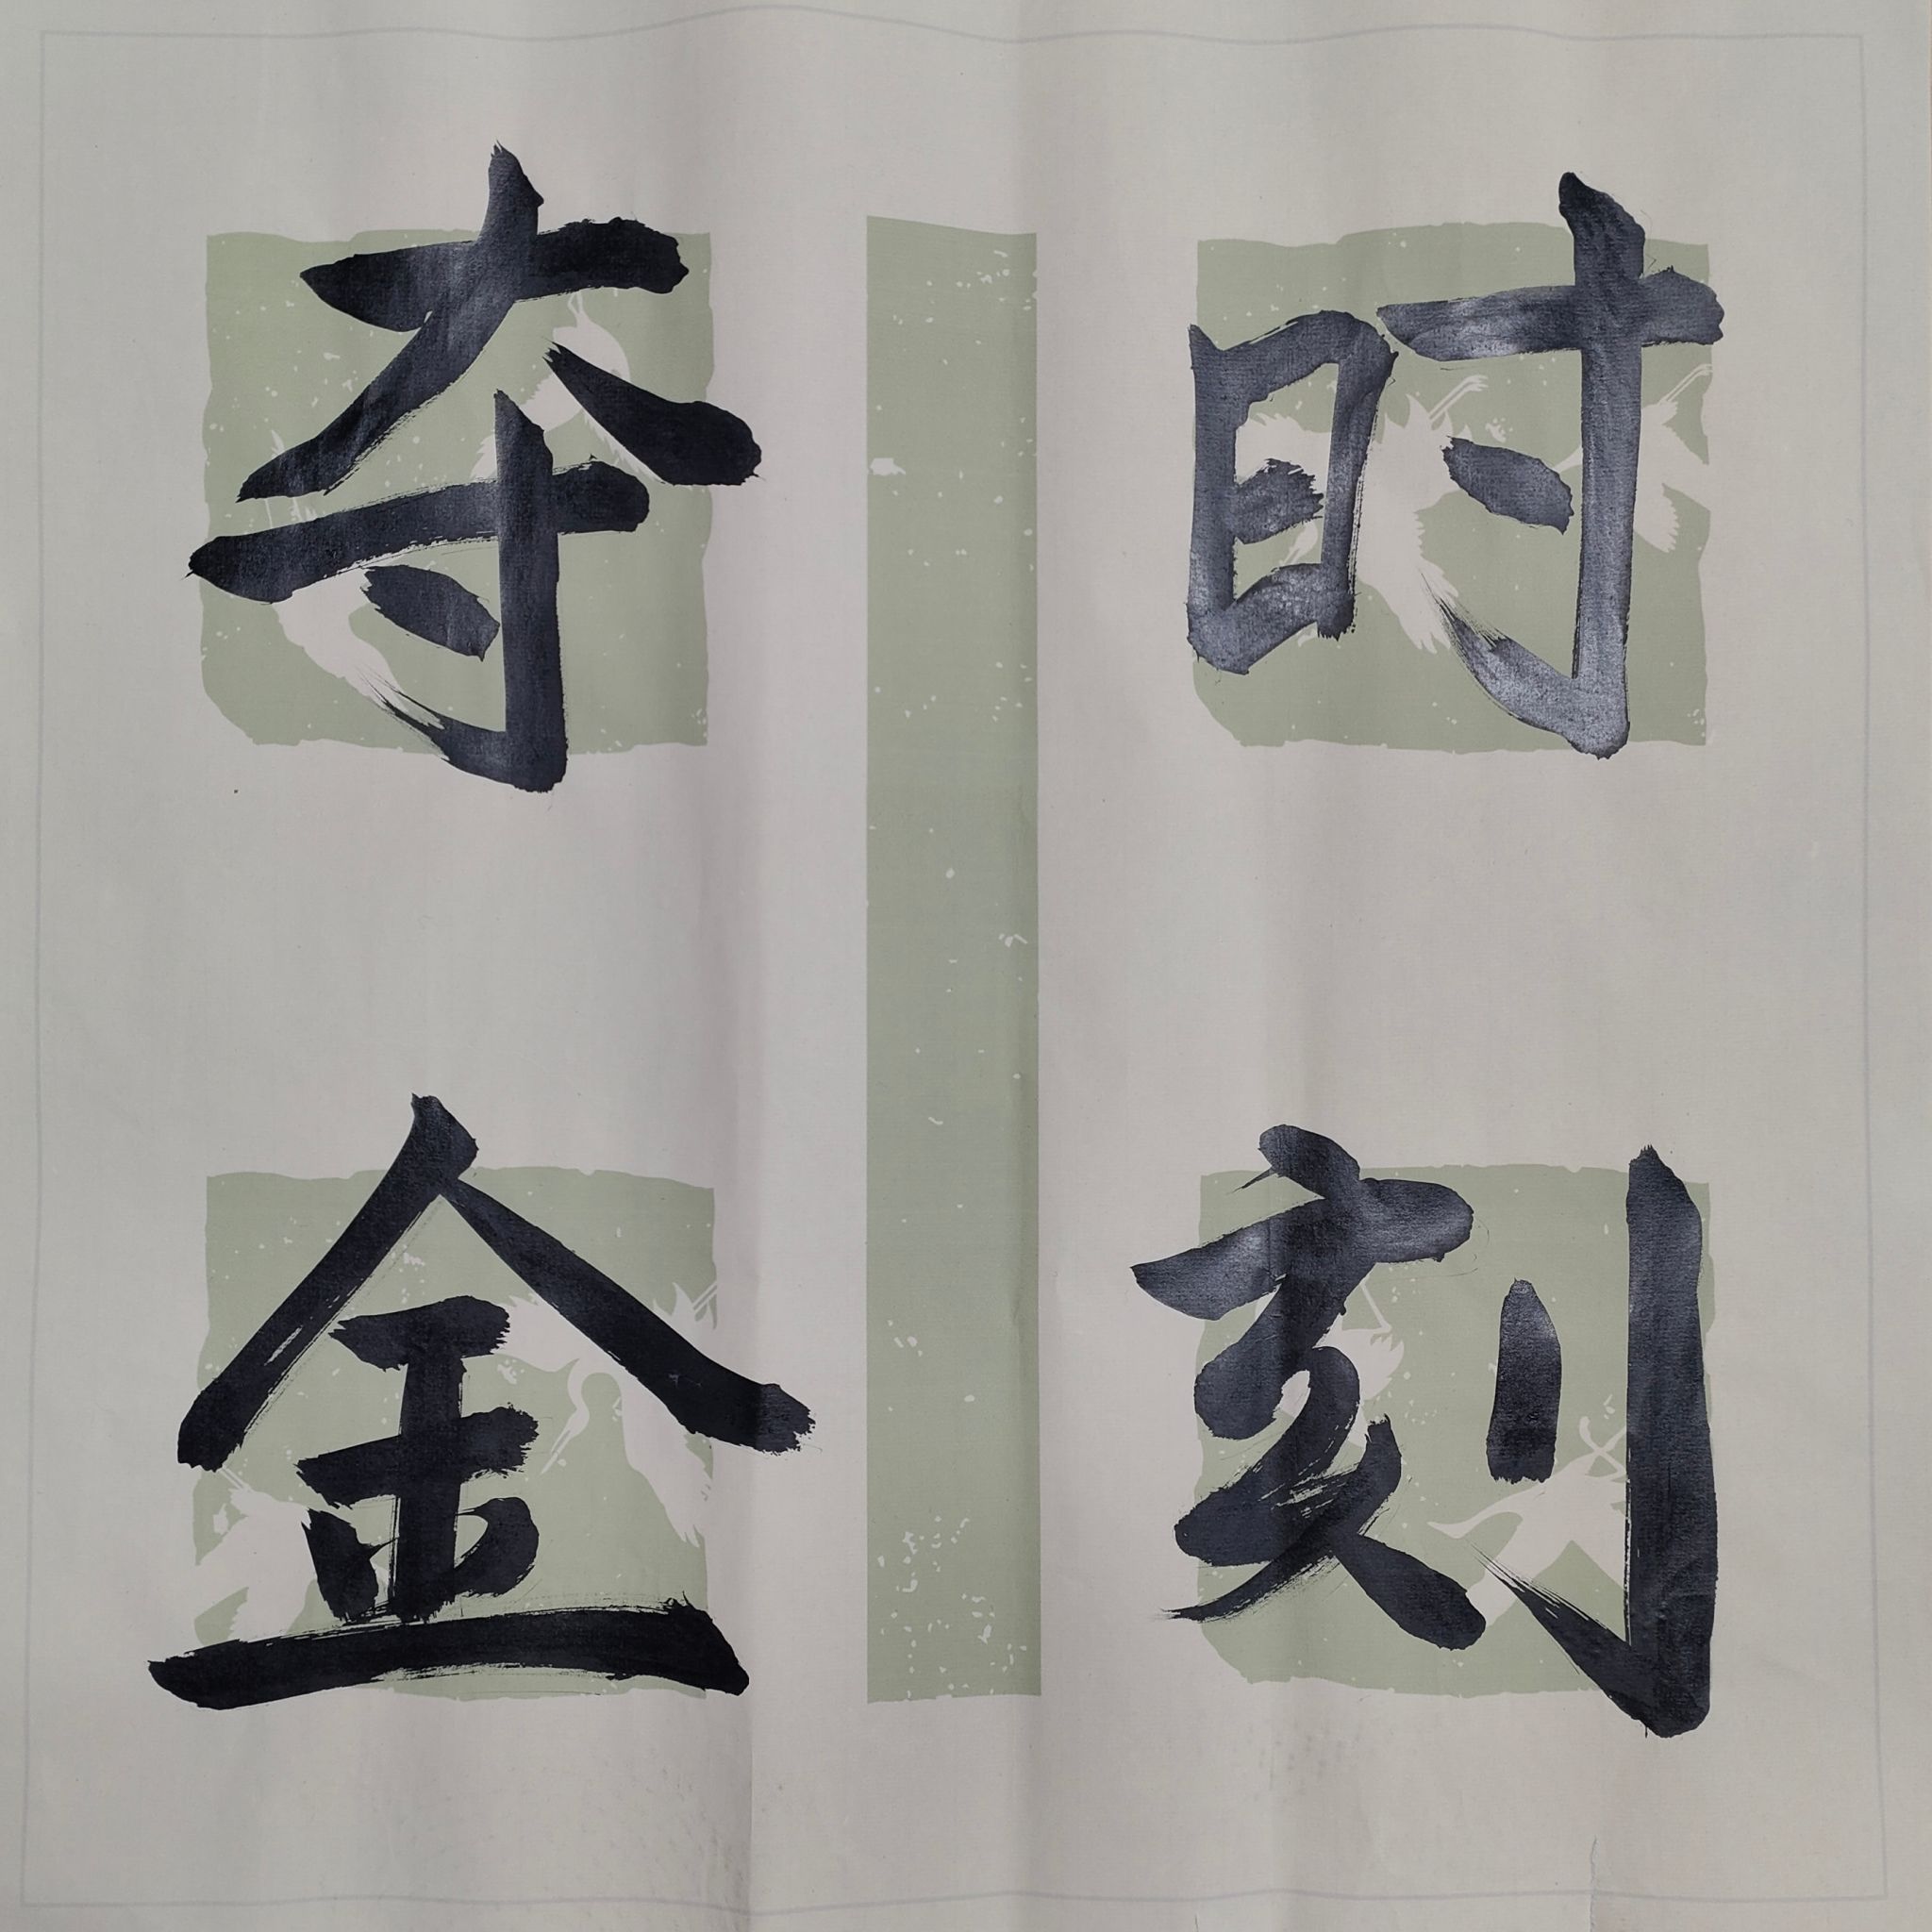 时刻
夺金